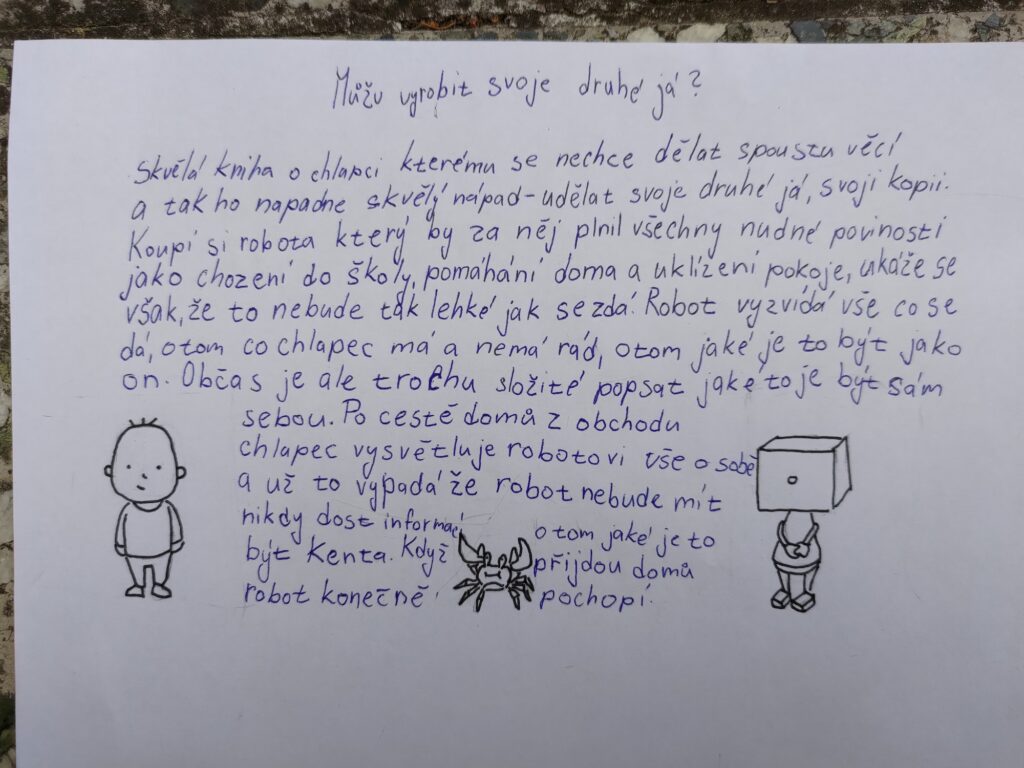 Můžu vyrobit svoje druhé já?
Skvělá kniha o chlapci kterému se nechce dělat spoustu věcí
a tak ho napadne skvělý nápad-udělat svoje druhé já, svoji kopii.
Koupí si robota který by za něj plnil všechny nudné povinosti
jako chození do školy, pomáhání doma a uklízení pokoje, ukáže se
však, že to nebude tak lehké jak se zdá. Robot vyzvídá vše co se
dá, o tom co chlapec má a nemá rád, o tom jaké je to být jako
on. Občas je ale trochu složité popsat jaké to je být sám
sebou. Po cestě domů z obchodu
chlapec vysvětluje robotovi vše o sobě
a už to vypadá že robot nebude mít
nikdy dost informací o tom jaké je to
být Kenta. Když přijdou domů
robot konečně pochopí.